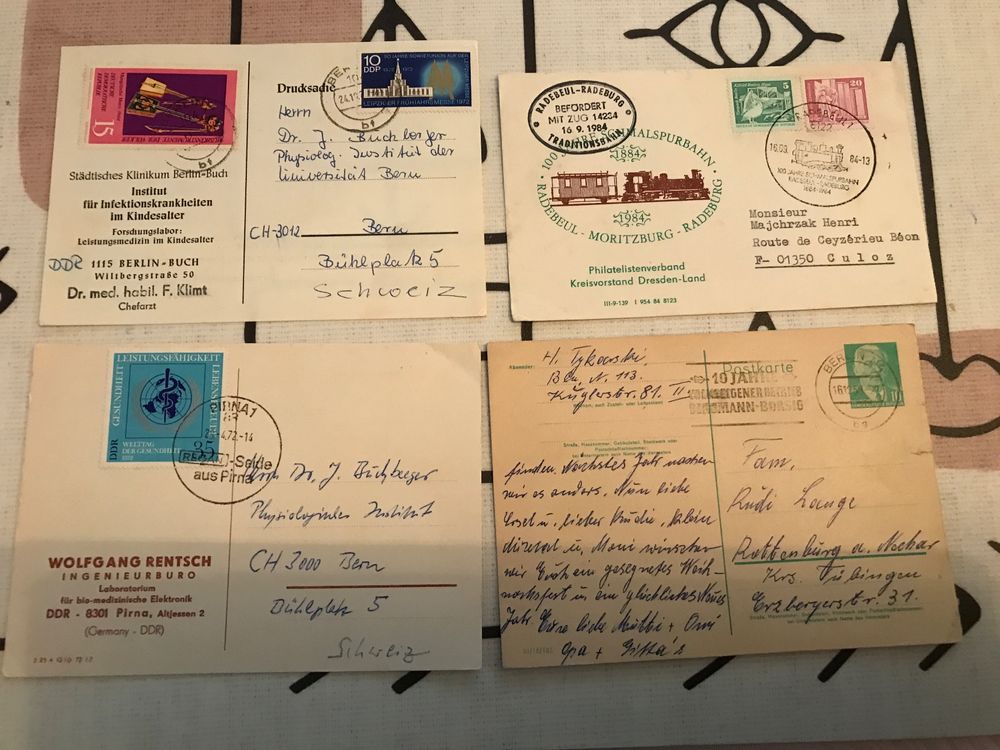 15
DDR
10
DDR
LEIPZIGER FRÜHJAHRSMESSE 1972
24.10.
bf
Drucksache
Städtisches Klinikum Berlin-Buch
Institut
für Infektionskrankheiten
im Kindesalter
Forschungslabor:
Leistungsmedizin im Kindesalter
DDR 1115 BERLIN - BUCH
Wiltbergstraße 50
Dr. med. habil. F. Klimt
Chefarzt
Herrn
Dr. J. Buchberger
Physiolog. Institut der
Universität Bern
CH-3012 Bern
Bühlplatz 5
Schweiz
RADEBEUL-RADEBURG
BEFÖRDERT
MIT ZUG 14234
16. 9. 1984
TRADITIONSBAHN
100 JAHRE SCHMALSPURBAHN
1884
1984
RADEBEUL - MORITZBURG - RADEBURG
5
20
RADEBEUL 1
8122
16.09. 84-13
100 JAHRE SCHMALSPURBAHN
RADEBEUL - RADEBURG
1884-1984
Monsieur
Majchrzak Henri
Route de Ceyzérieu Béon
F- 01350 Culoz
Philatelistenverband
Kreisvorstand Dresden-Land
III-9-139 I 954 84 8123
GESUNDHEIT LEISTUNGSFÄHIGKEIT LEBENSFREUDE
WELTTAG
DER GESUNDHEIT
1972
DDR
35
PIRNA 1
4.72.-14
-Seide
aus Pirna
WOLFGANG RENTSCH
INGENIEURBÜRO
Laboratorium
für bio-medizinische Elektronik
DDR - 8301 Pirna, Altjessen 2
(Germany - DDR)
Herrn Dr. J. Buchberger
Physiologisches Institut
CH 3000 Bern
Bühlplatz 5
Schweiz
Absender:
Bln. N. 113.
Kuglerstr. 81. II
Postkarte
10 JAHRE
VOLKSEIGENER BETRIEB
BERGMANN-BORSIG
10
Straße, Hausnummer, Gebäudeteil, Stockwerk oder
Postschließfachnummer
finden. Nächstes Jahr machen
wir es anders. Nun liebe
Ursel u. lieber Rudi, klein
u. Moni wünschen
wir Euch ein gesegnetes Weih-
nachtsfest u. ein glückliches Neues
Jahr. Eure liebe Mutti + Omi
Opa + Gitta's
Fam.
Rudi Lange
Rottenburg a. Neckar
Krs. Tübingen
Erzbergerstr. 31.